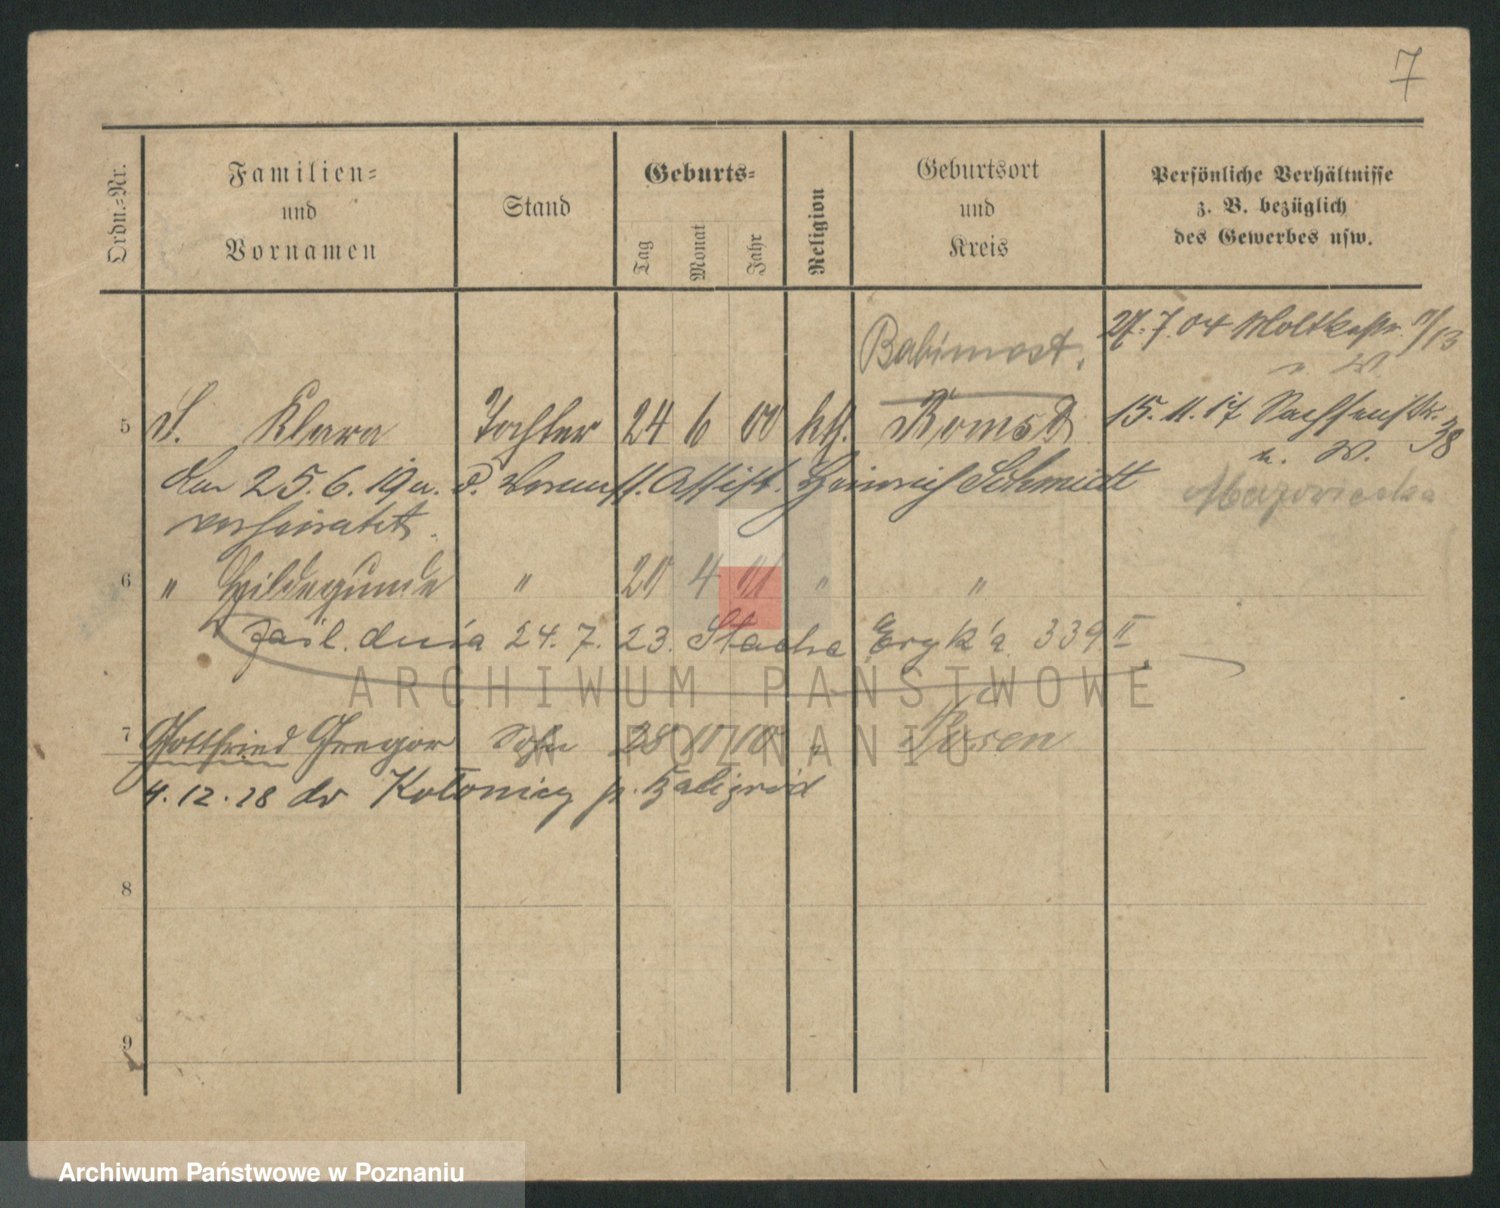 7
Ordn.-Nr.
Familien-
und
Vornamen
Stand
Geburts-
Tag
Monat
Jahr
Religion
Geburtsort
und
Kreis
Persönliche Verhältnisse
z. B. bezüglich
des Gewerbes usw.
Babimost.
27.7.04 Moltkestr. 11/13
n. W.
5 S. Klara Tochter 24 6 00 kth. Bomst 15.11.17 Sachsenstr. 38
n. W.
den 25.6.19 m. d. Assist. Heinrich Schmidt
verheiratet.
Mazowiecka
6 " Hildegunde " 20 4 01 " "
zaśl. dnia 24.7.23. Stacha Eryk'a 339 II
7 Gottfried Gregor Sohn 28 11 10 " Posen
4.12.28 do Kołonicy p. Baligród
8
9
ARCHIWUM PAŃSTWOWE
W POZNANIU
Archiwum Państwowe w Poznaniu